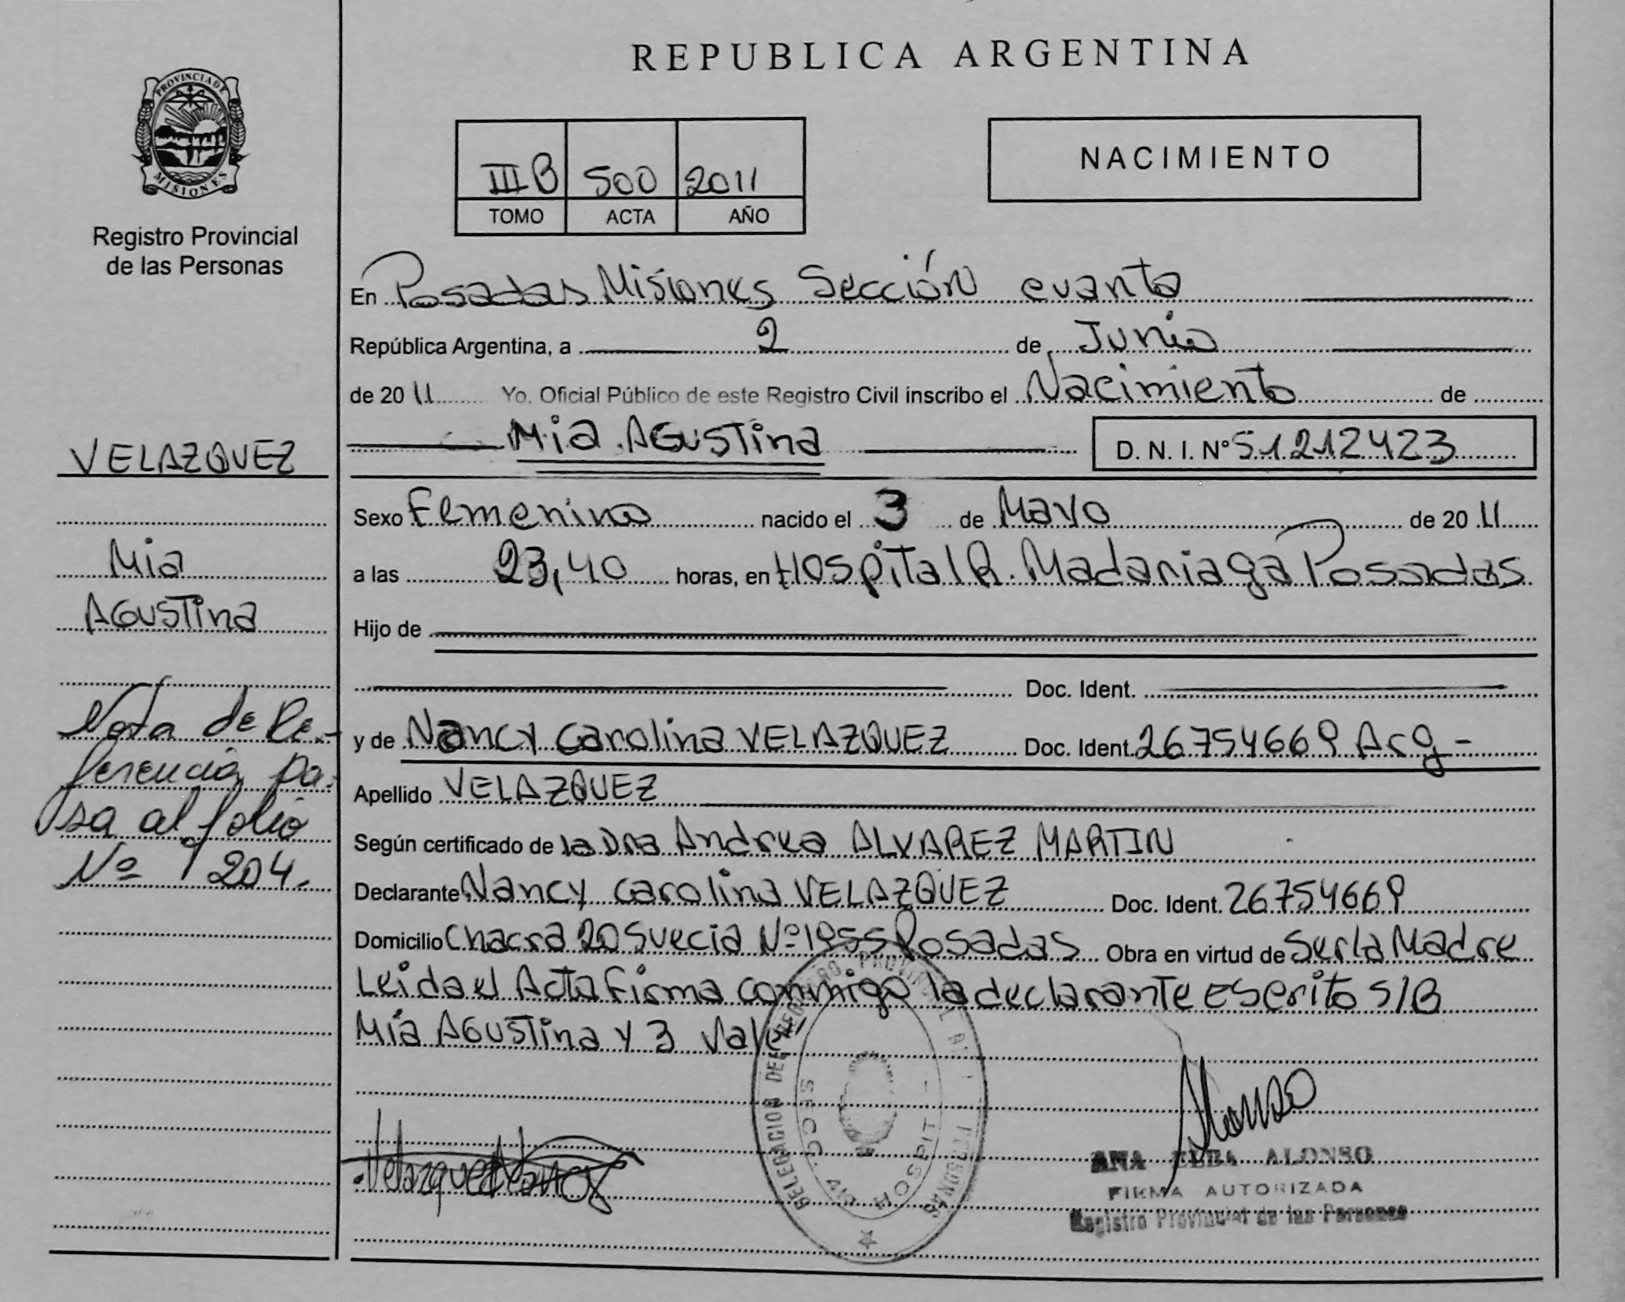 REPUBLICA ARGENTINA
PROVINCIA DE MISIONES
Registro Provincial
de las Personas
IIIB 500 2011
TOMO ACTA AÑO
NACIMIENTO
En Posadas Misiones Sección cuarta
República Argentina, a 2 de Junio
de 2011 Yo. Oficial Público de este Registro Civil inscribo el Nacimiento de
Mia Agustina D. N. I. Nº 51.212.423
Sexo Femenino nacido el 3 de Mayo de 2011
a las 23,40 horas, en Hospital R. Madariaga Posadas
Hijo de
Doc. Ident.
y de Nancy Carolina VELAZQUEZ Doc. Ident. 26754669 Arg -
Apellido VELAZQUEZ
Según certificado de la Dra Andrea ALVAREZ MARTIN
Declarante Nancy Carolina VELAZQUEZ Doc. Ident. 26754669
Domicilio Chacra 20 Suecia Nº 1955 Posadas Obra en virtud de Ser la Madre
Leida el Acta Firma conmigo la declarante Escrito S/B
Mía Agustina y 3 Vale
VELAZQUEZ
Mia
Agustina
Nota de Re-
ferencia pa-
sa al folio
Nº 204.
Velazquez Nancy
DELEGACION DEL REGISTRO PROVINCIAL DE LAS PERSONAS
SECC. 4ta POSADAS
Alonso
ANA ELBA ALONSO
FIRMA AUTORIZADA
Registro Provincial de las Personas